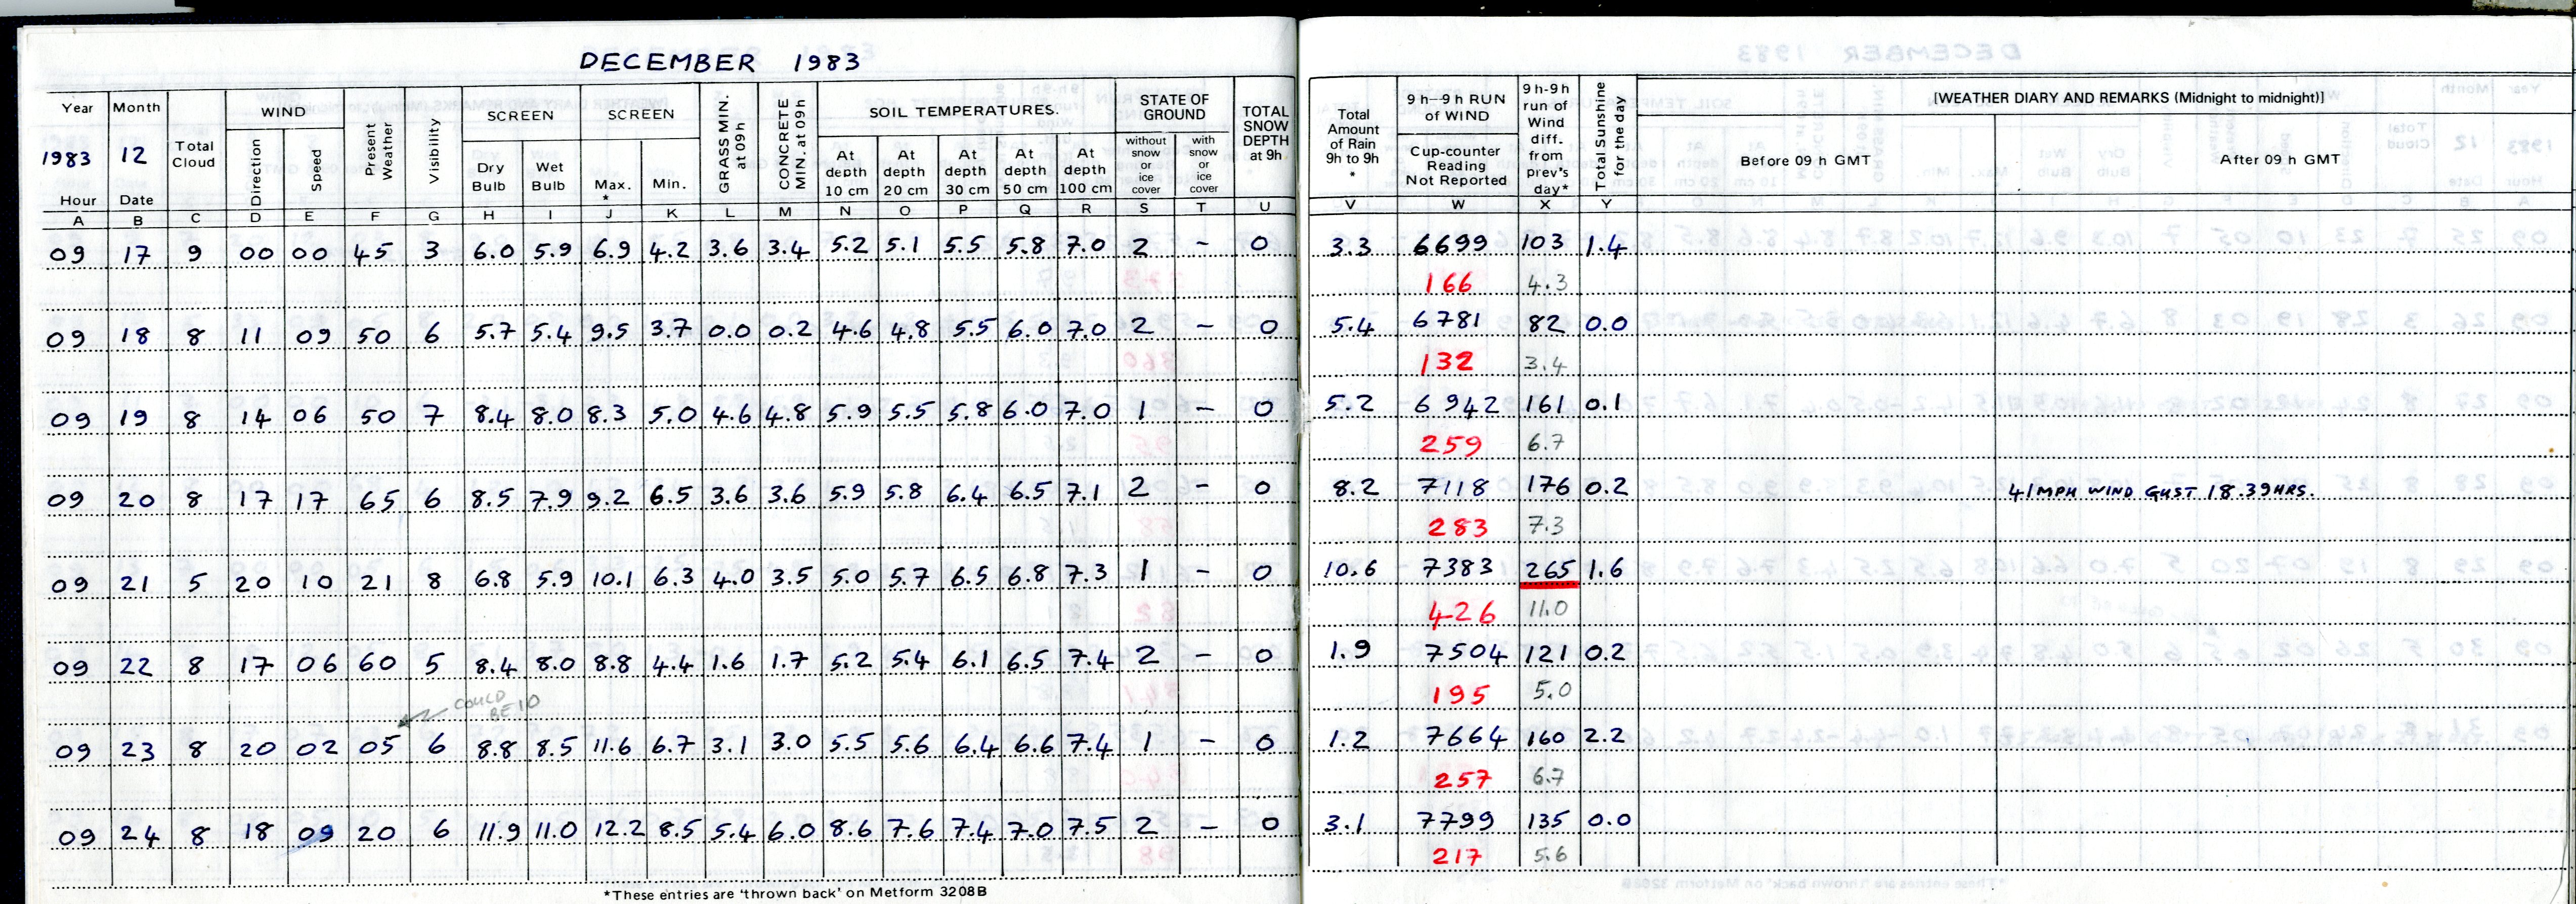 DECEMBER 1983
Year Month WIND SCREEN SCREEN SOIL TEMPERATURES. STATE OF GROUND TOTAL SNOW DEPTH at 9h
1983 12 Total Cloud Direction Speed Present Weather Visibility Dry Bulb Wet Bulb Max. * Min. GRASS MIN. at 09h CONCRETE MIN. at 09h At depth 10 cm At depth 20 cm At depth 30 cm At depth 50 cm At depth 100 cm without snow or ice cover with snow or ice cover
Hour Date
Total Amount of Rain 9h to 9h * 9h–9h RUN of WIND Cup-counter Reading Not Reported 9h-9h run of Wind diff. from prev's day* Total Sunshine for the day [WEATHER DIARY AND REMARKS (Midnight to midnight)]
Before 09 h GMT After 09 h GMT
A B C D E F G H I J K L M N O P Q R S T U V W X Y
09 17 9 00 00 45 3 6.0 5.9 6.9 4.2 3.6 3.4 5.2 5.1 5.5 5.8 7.0 2 – 0 3.3 6699 103 1.4
166 4.3
09 18 8 11 09 50 6 5.7 5.4 9.5 3.7 0.0 0.2 4.6 4.8 5.5 6.0 7.0 2 – 0 5.4 6781 82 0.0
132 3.4
09 19 8 14 06 50 7 8.4 8.0 8.3 5.0 4.6 4.8 5.9 5.5 5.8 6.0 7.0 1 – 0 5.2 6942 161 0.1
259 6.7
09 20 8 17 17 65 6 8.5 7.9 9.2 6.5 3.6 3.6 5.9 5.8 6.4 6.5 7.1 2 – 0 8.2 7118 176 0.2 41 MPH WIND GUST 18.39 HRS.
283 7.3
09 21 5 20 10 21 8 6.8 5.9 10.1 6.3 4.0 3.5 5.0 5.7 6.5 6.8 7.3 1 – 0 10.6 7383 265 1.6
426 11.0
09 22 8 17 06 60 5 8.4 8.0 8.8 4.4 1.6 1.7 5.2 5.4 6.1 6.5 7.4 2 – 0 1.9 7504 121 0.2
195 5.0
COULD BE 10
09 23 8 20 02 05 6 8.8 8.5 11.6 6.7 3.1 3.0 5.5 5.6 6.4 6.6 7.4 1 – 0 1.2 7664 160 2.2
257 6.7
09 24 8 18 09 20 6 11.9 11.0 12.2 8.5 5.4 6.0 8.6 7.6 7.4 7.0 7.5 2 – 0 3.1 7799 135 0.0
217 5.6
*These entries are 'thrown back' on Metform 3208B